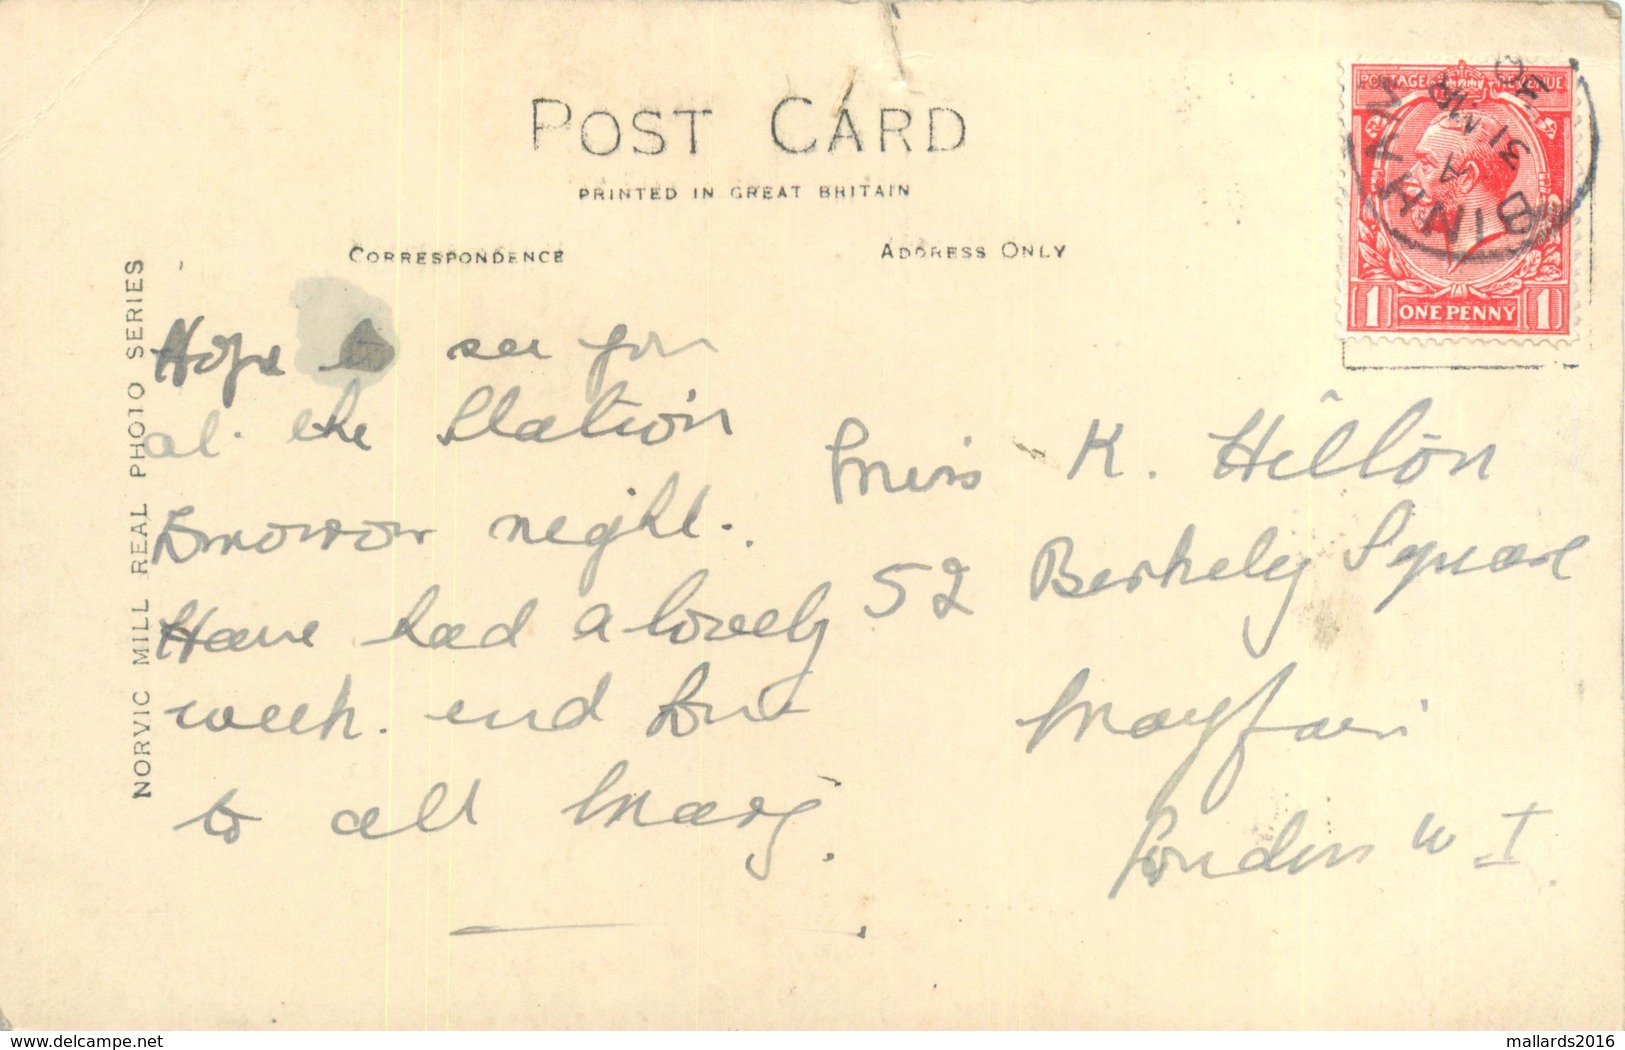 POST CARD
PRINTED IN GREAT BRITAIN
CORRESPONDENCE
ADDRESS ONLY
NORVIC MILL REAL PHOTO SERIES
POSTAGE REVENUE
1 ONE PENNY 1
BINHAM
A
31 MR
Hope to see you
at the Station
tomorrow night.
Have had a lovely
week. end
to all Mary.
Miss K. Hilton
52 Berkeley Square
Mayfair
London W I
delcampe.net
mallards2016